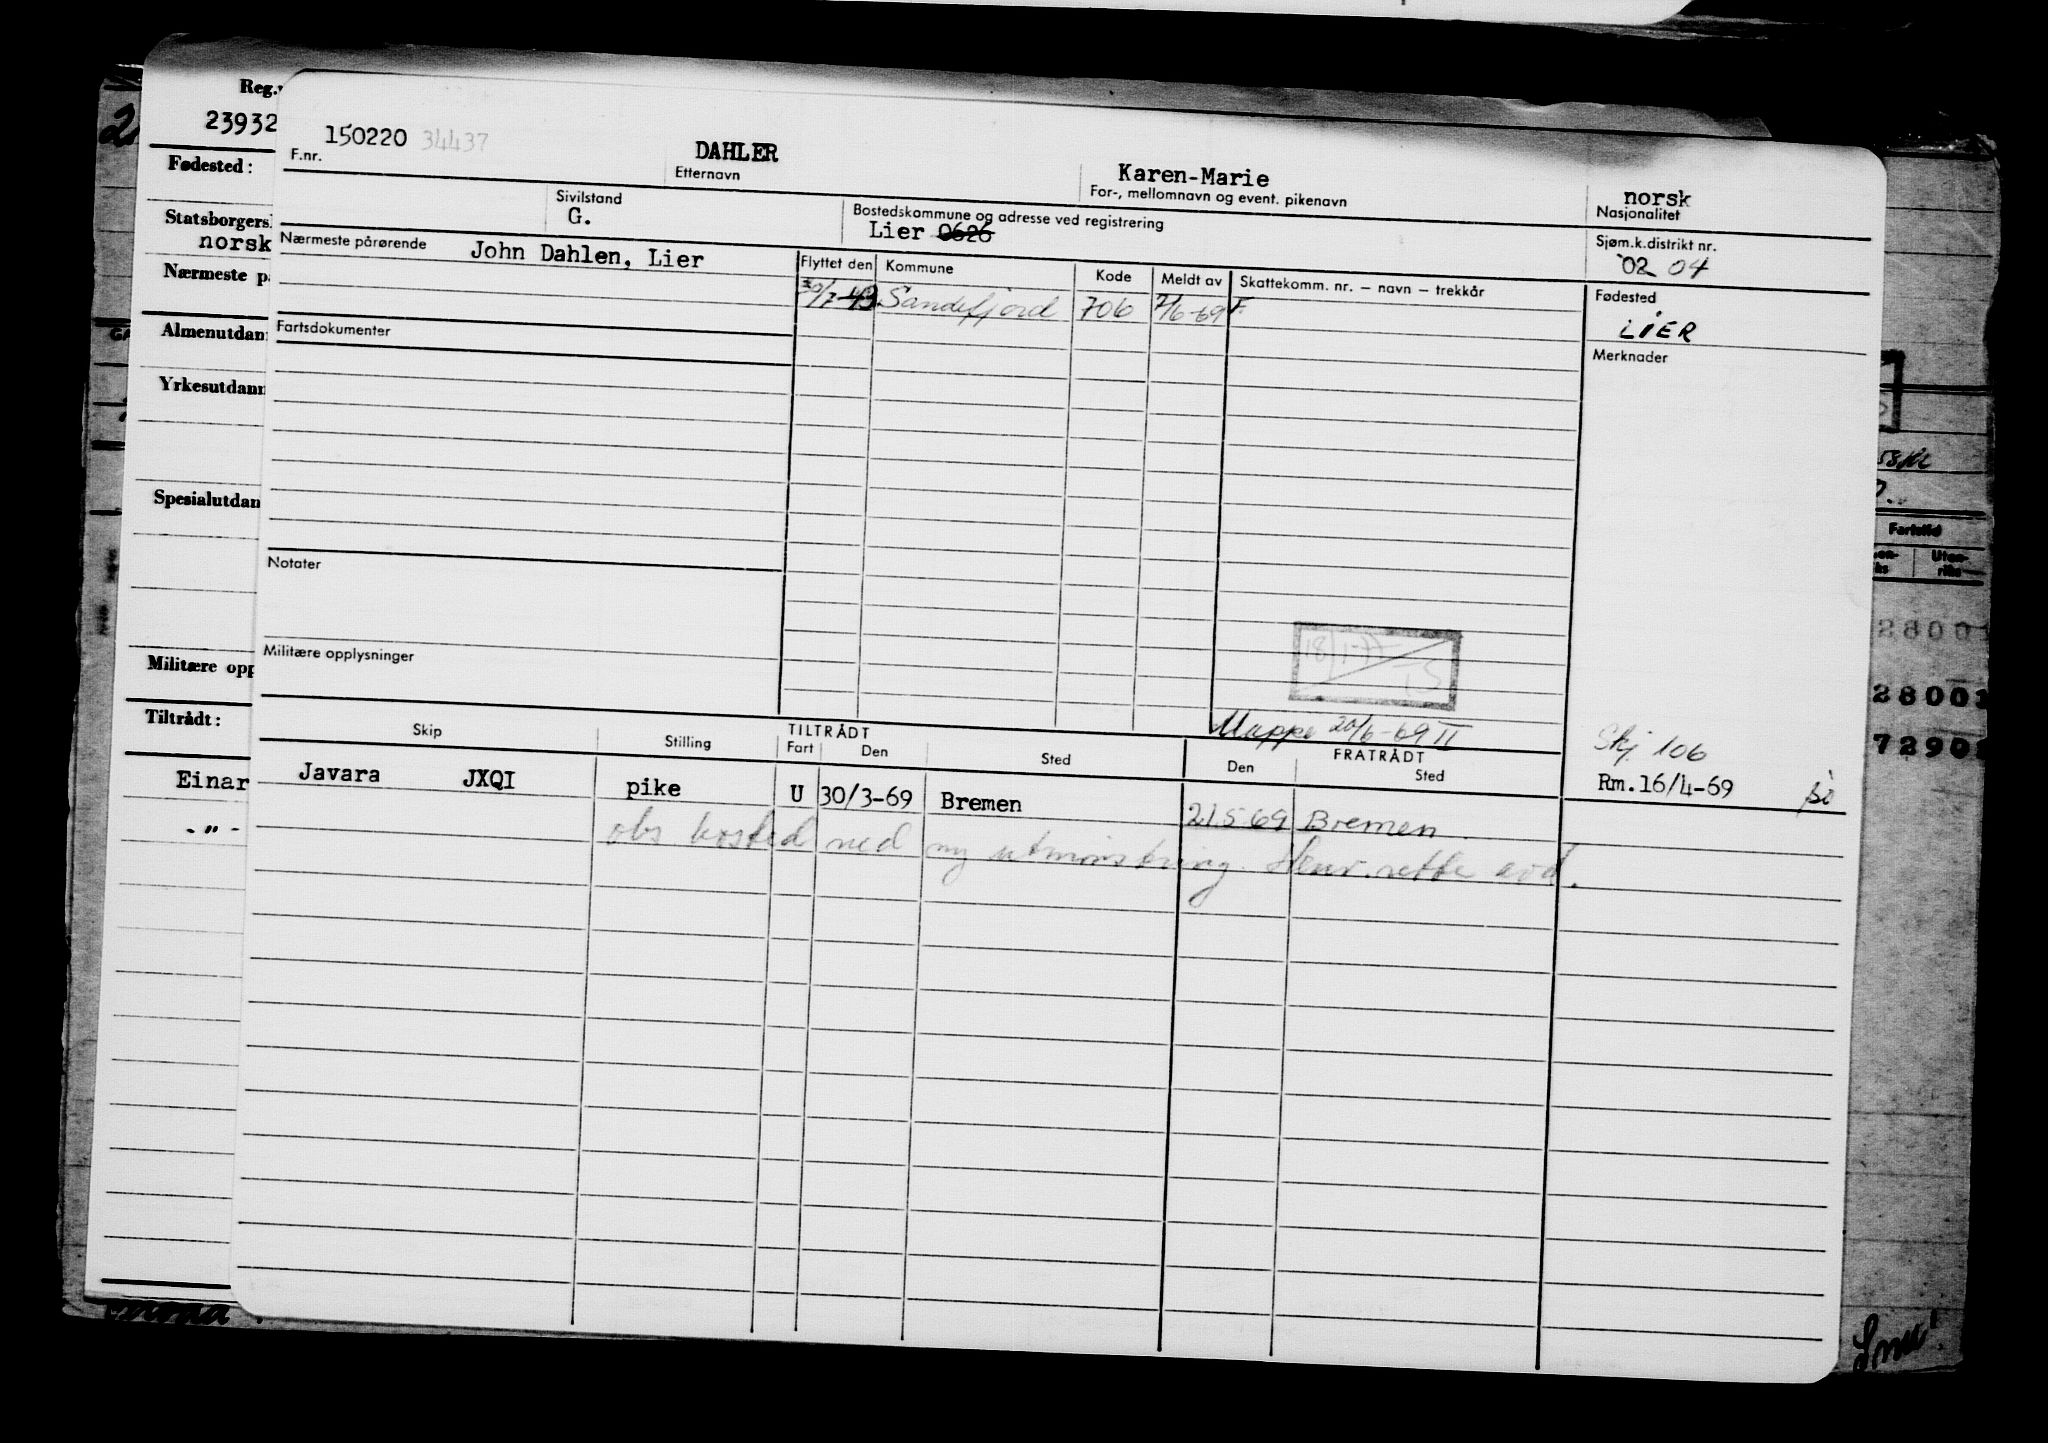 Reg.
23932
Fødested:
norsk
Nærmeste p
Almenutdan
Yrkesutdann
Spesialutdan
Militære opp
Tiltrådt:
Einar
- " -
150220 34437
F.nr.
DAHLER
Etternavn
Karen-Marie
For-, mellomnavn og event. pikenavn
norsk
Nasjonalitet
Sivilstand
G.
Bostedskommune og adresse ved registrering
Lier 0626
Sjøm.k.distrikt nr.
02 04
Nærmeste pårørende John Dahlen, Lier
Flyttet den Kommune Kode Meldt av Skattekomm. nr. – navn – trekkår
Sandefjord 706 7/6-69 F.
Fødested
LIER
Fartsdokumenter
Merknader
Notater
Militære opplysninger
18/1-77
Mappe 20/6-69 II
Skip Stilling TILTRÅDT Fart Den Sted FRATRÅDT Den Sted
Skj 106
Javara JXQI pike U 30/3-69 Bremen 21.5 69 Bremen Rm.16/4-69
obs kosted ved ny utmønstring. Henv. rette avd.
Fartstid
28001
28001
7290